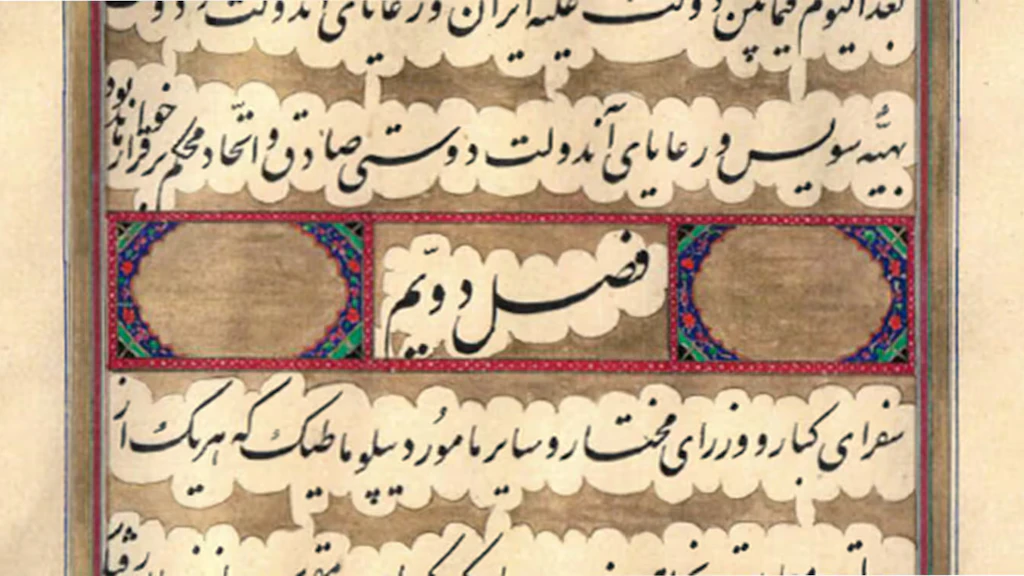 بعد الیوم فیمابین دولت علیه ایران و رعایای آندولت و دولت
بهیّه سویس و رعایای آندولت دوستی صادق و اتّحاد محکم برقرار خواهد بود
فصل دویّم
سفرای کبار و وزرای مختار و سایر مامورد یپلوماطیک که هریک از